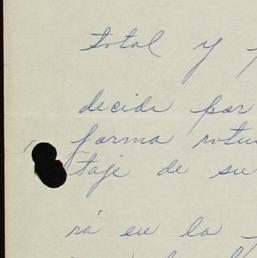 total y
decide por
forma rotun
taje de su
rá en la